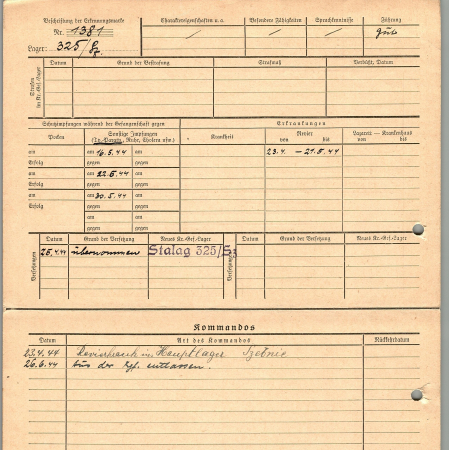 Beschriftung der Erkennungsmarke
Nr. 1381
Lager: 325/Sz.
Charaktereigenschaften u. a.
/
Besondere Fähigkeiten
/
Sprachkenntnisse
/
Führung
gut
Strafen im Kr.-Gef.-Lager
Datum Grund der Bestrafung Strafmaß Verbüßt, Datum
Schutzimpfungen während der Gefangenschaft gegen
Erkrankungen
Pocken
Sonstige Impfungen
(Ty.-Paraty., Ruhr, Cholera usw.)
Krankheit
Revier
von bis
Lazarett — Krankenhaus
von bis
am am 16.5.44 am 23.4. – 21.5.44
Erfolg gegen gegen
am am 22.5.44 am
Erfolg gegen gegen
am am 30.5.44 am
Erfolg gegen gegen
am am
gegen gegen
Versetzungen
Datum Grund der Versetzung Neues Kr.-Gef.-Lager
Versetzungen
Datum Grund der Versetzung Neues Kr.-Gef.-Lager
25.4.44 übernommen Stalag 325/Sz
Kommandos
Datum Art des Kommandos Rückkehrdatum
23.4.44 Revierkrank im Hauptlager
26.6.44 Aus der Kgf. entlassen.